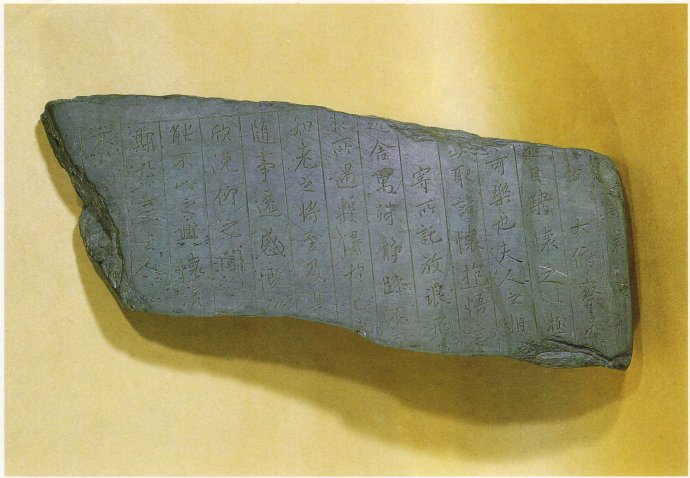 大俯察品
目騁懷足以極
可樂也夫人之相
取諸懷抱悟言
寄所託放浪形
舍萬殊靜躁不
所遇蹔得於己
知老之將至及其
隨事遷感慨係
欣俛仰之間
能不以之興懷況
期於盡古人